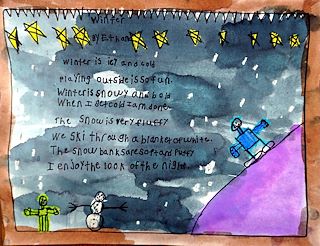 Winter
By Ethan
Winter is icy and cold
Playing outside is so fun.
Winter is snowy and bold
When I get cold I am done.
The snow is very fluffy
We ski through a blanket of white.
The snow banks are soft and Puffy
I enjoy the look of the night.